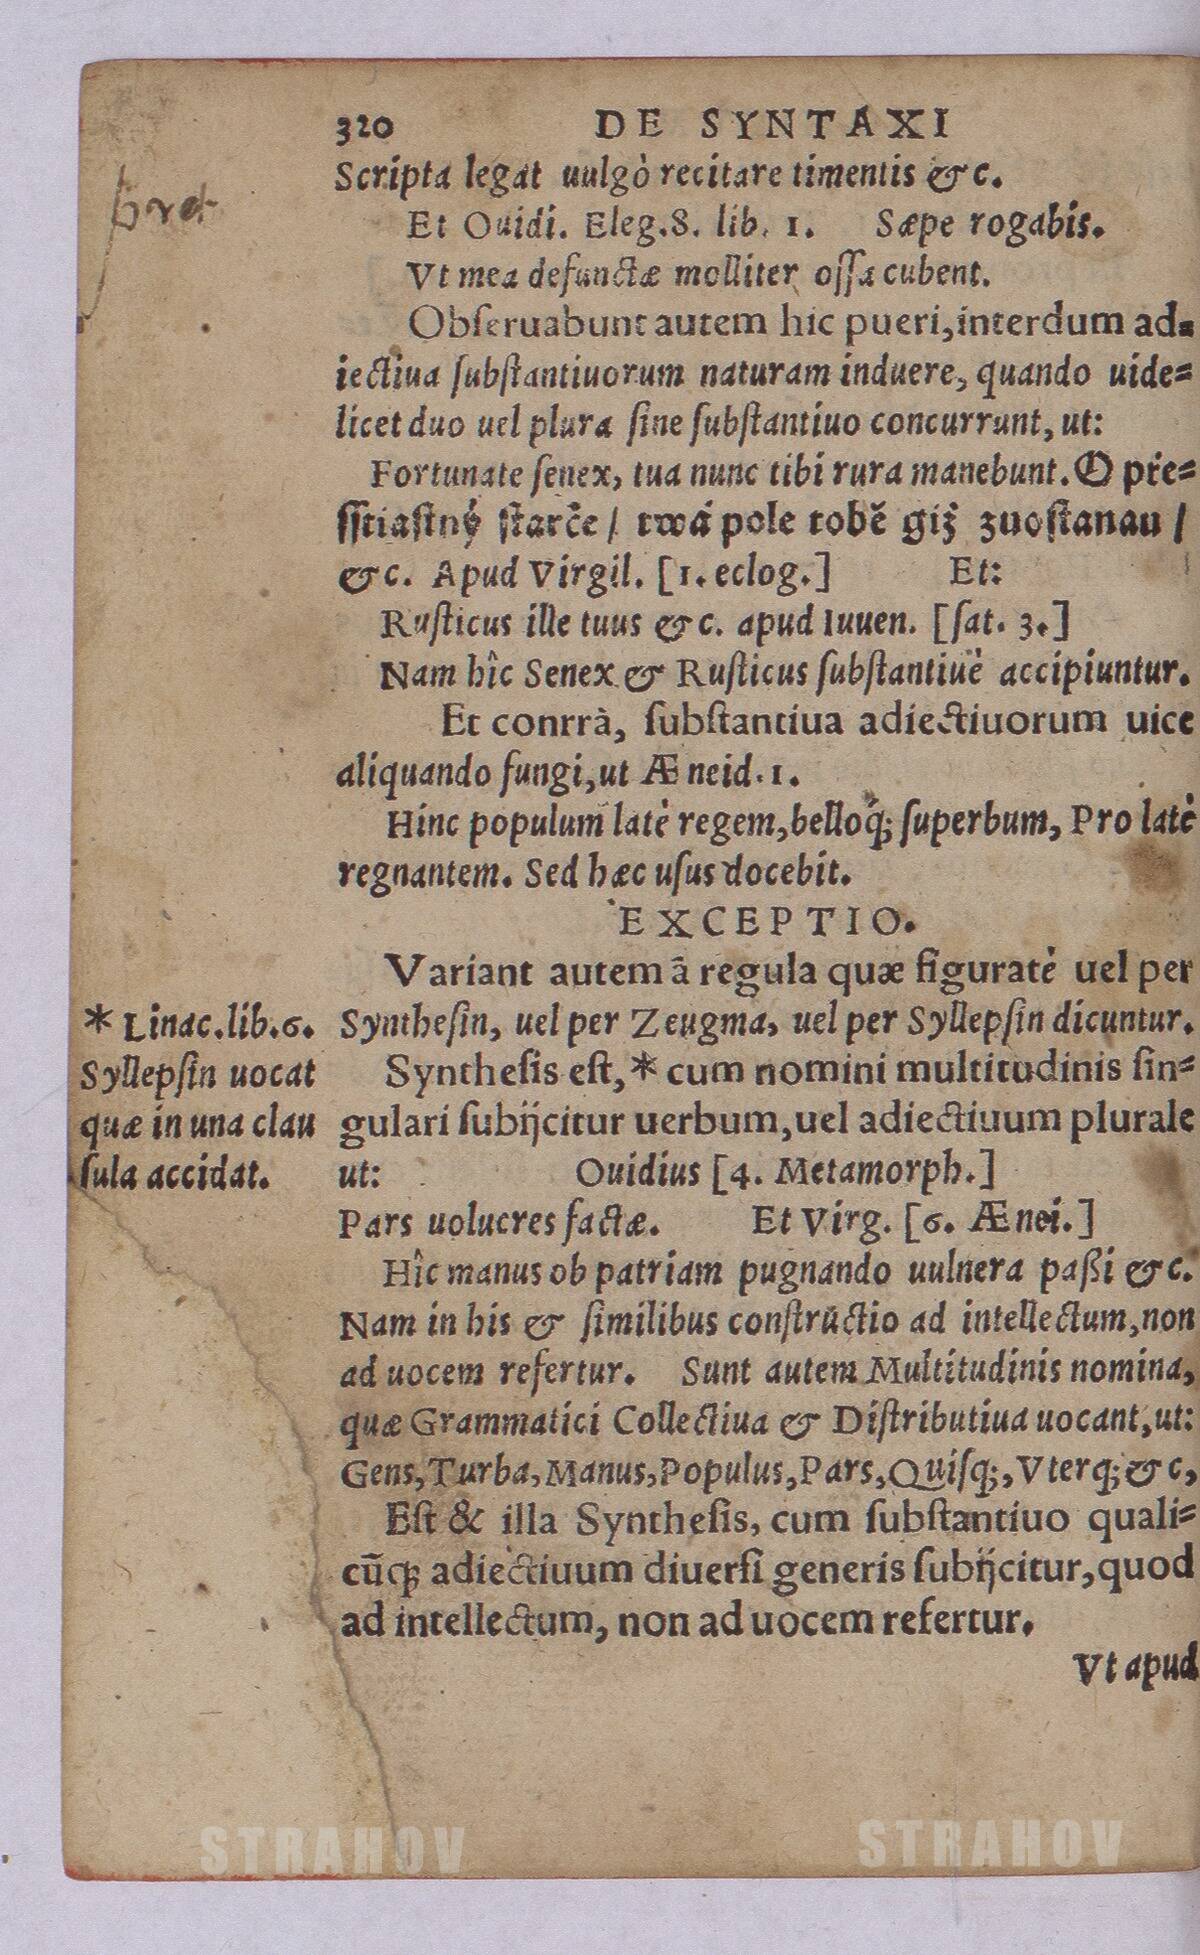 320 DE SYNTAXI
Scripta legat uulgò recitare timentis &c.
Et Ouidi. Eleg.8. lib. 1. Sæpe rogabis.
Vt mea defunctæ molliter ossa cubent.
Obseruabunt autem hic pueri, interdum ad=
iectiua substantiuorum naturam induere, quando uide=
licet duo uel plura sine substantiuo concurrunt, ut:
Fortunate senex, tua nunc tibi rura manebunt. O pře=
sstiastný starče / twá pole tobě giž zuostanau /
&c. Apud Virgil. [1. eclog.] Et:
Rusticus ille tuus &c. apud Iuuen. [sat. 3.]
Nam hîc Senex & Rusticus substantiuè accipiuntur.
Et conrrà, substantiua adiectiuorum uice
aliquando fungi, ut Æneid. 1.
Hinc populum latè regem, belloq́; superbum, Pro latè
regnantem. Sed hæc usus docebit.
EXCEPTIO.
Variant autem ā regula quæ figuratè uel per
Synthesin, uel per Zeugma, uel per Syllepsin dicuntur.
Synthesis est, * cum nomini multitudinis sin=
gulari subijcitur uerbum, uel adiectiuum plurale
ut: Ouidius [4. Metamorph.]
Pars uolucres factæ. Et Virg. [6. Ænei.]
Hîc manus ob patriam pugnando uulnera paßi &c.
Nam in his & similibus constructio ad intellectum, non
ad uocem refertur. Sunt autem Multitudinis nomina,
quæ Grammatici Collectiua & Distributiua uocant, ut:
Gens, Turba, Manus, Populus, Pars, Quisq;, Vterq; &c,
Est & illa Synthesis, cum substantiuo quali=
cūq; adiectiuum diuersi generis subijcitur, quod
ad intellectum, non ad uocem refertur.
Vt apud
* Linac. lib. 6.
Syllepsin uocat
quæ in una clau
sula accidat.
STRAHOV STRAHOV